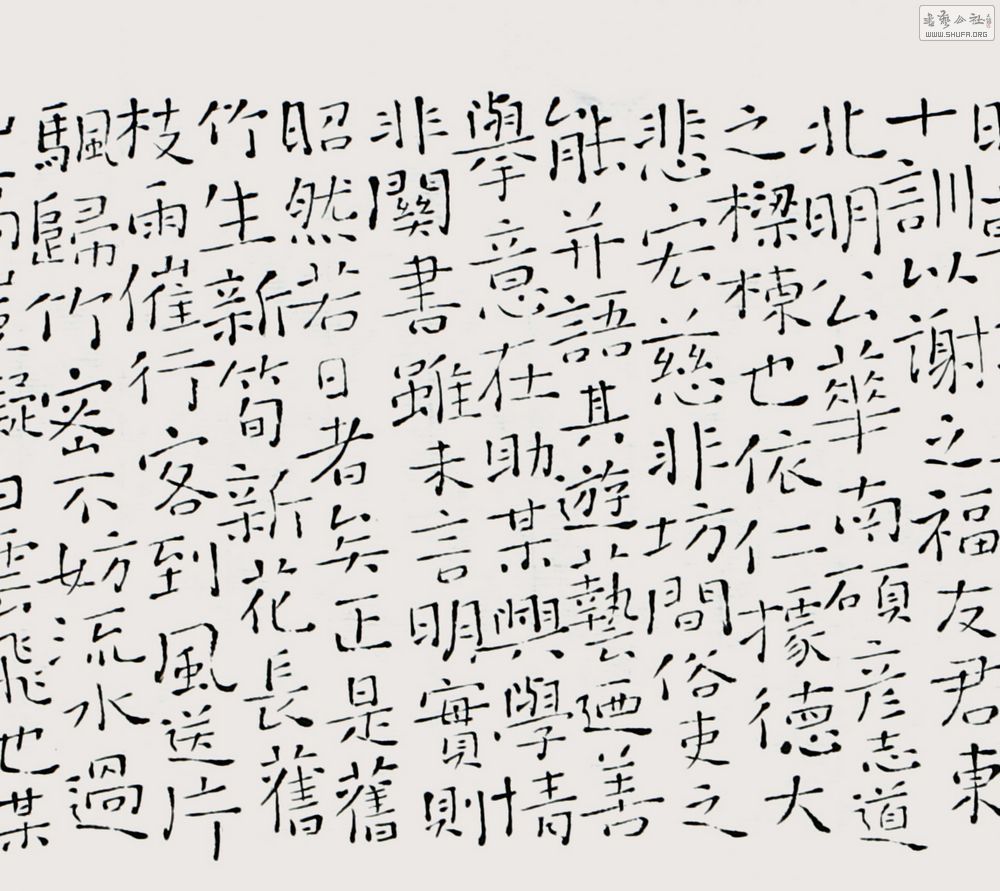 書藝公社
WWW.SHUFA.ORG
十訓以謝之福友君東
北明公華南碩彥志道
之樑棟也依仁據德大
悲宏慈非坊間俗吏之
能并語其遊藝廼善
舉意在助某興學情
非關書雖未言明實則
昭然若日者矣正是舊
竹生新筍新花長舊
枝雨催行客到風送片
颿歸竹密不妨流水過
山高豈礙白雲飛也某